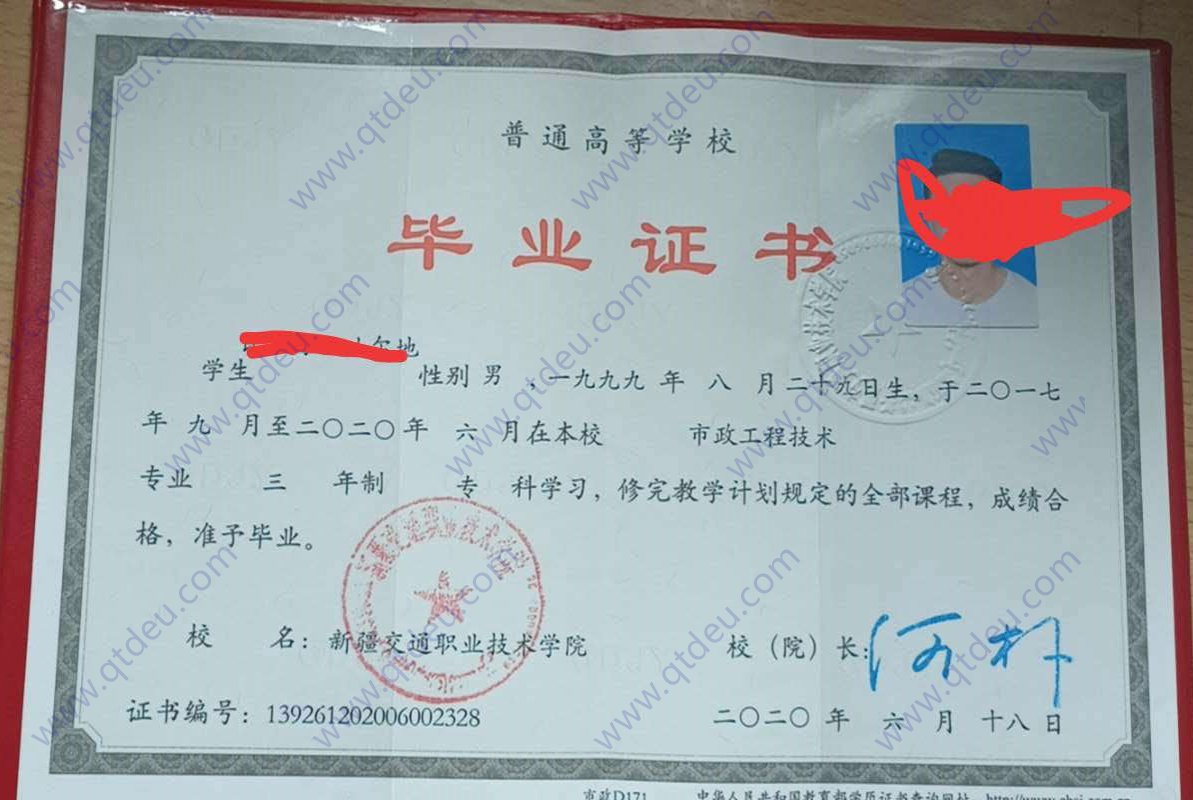 普通高等学校
毕业证书
学生 尔地 性别 男 ，一九九九 年 八 月二十九日生，于二〇一七
年 九 月至二〇二〇年 六 月在本校 市政工程技术
专业 三 年制 专 科学习，修完教学计划规定的全部课程，成绩合
格，准予毕业。
校 名：新疆交通职业技术学院
校（院）长：
证书编号：139261202006002328
二〇二〇 年 六 月 十八 日
市政D171 中华人民共和国教育部学历证书查询网址
www.qtdeu.com